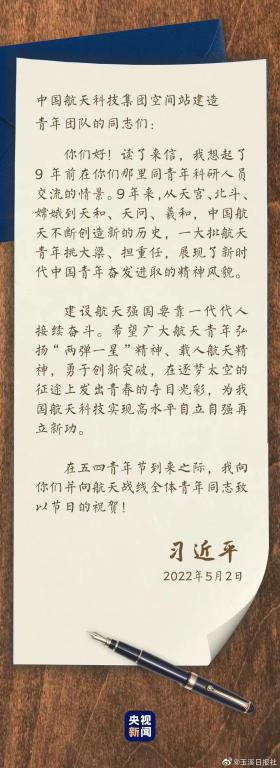 中国航天科技集团空间站建造
青年团队的同志们：
你们好！读了来信，我想起了
9年前在你们那里同青年科研人员
交流的情景。9年来，从天宫、北斗、
嫦娥到天和、天问、羲和，中国航
天不断创造新的历史，一大批航天
青年挑大梁、担重任，展现了新时
代中国青年奋发进取的精神风貌。
建设航天强国要靠一代代人
接续奋斗。希望广大航天青年弘
扬“两弹一星”精神、载人航天精
神，勇于创新突破，在逐梦太空的
征途上发出青春的夺目光彩，为我
国航天科技实现高水平自立自强再
立新功。
在五四青年节到来之际，我向
你们并向航天战线全体青年同志致
以节日的祝贺！
习近平
2022年5月2日
央视
新闻
@玉溪日报社